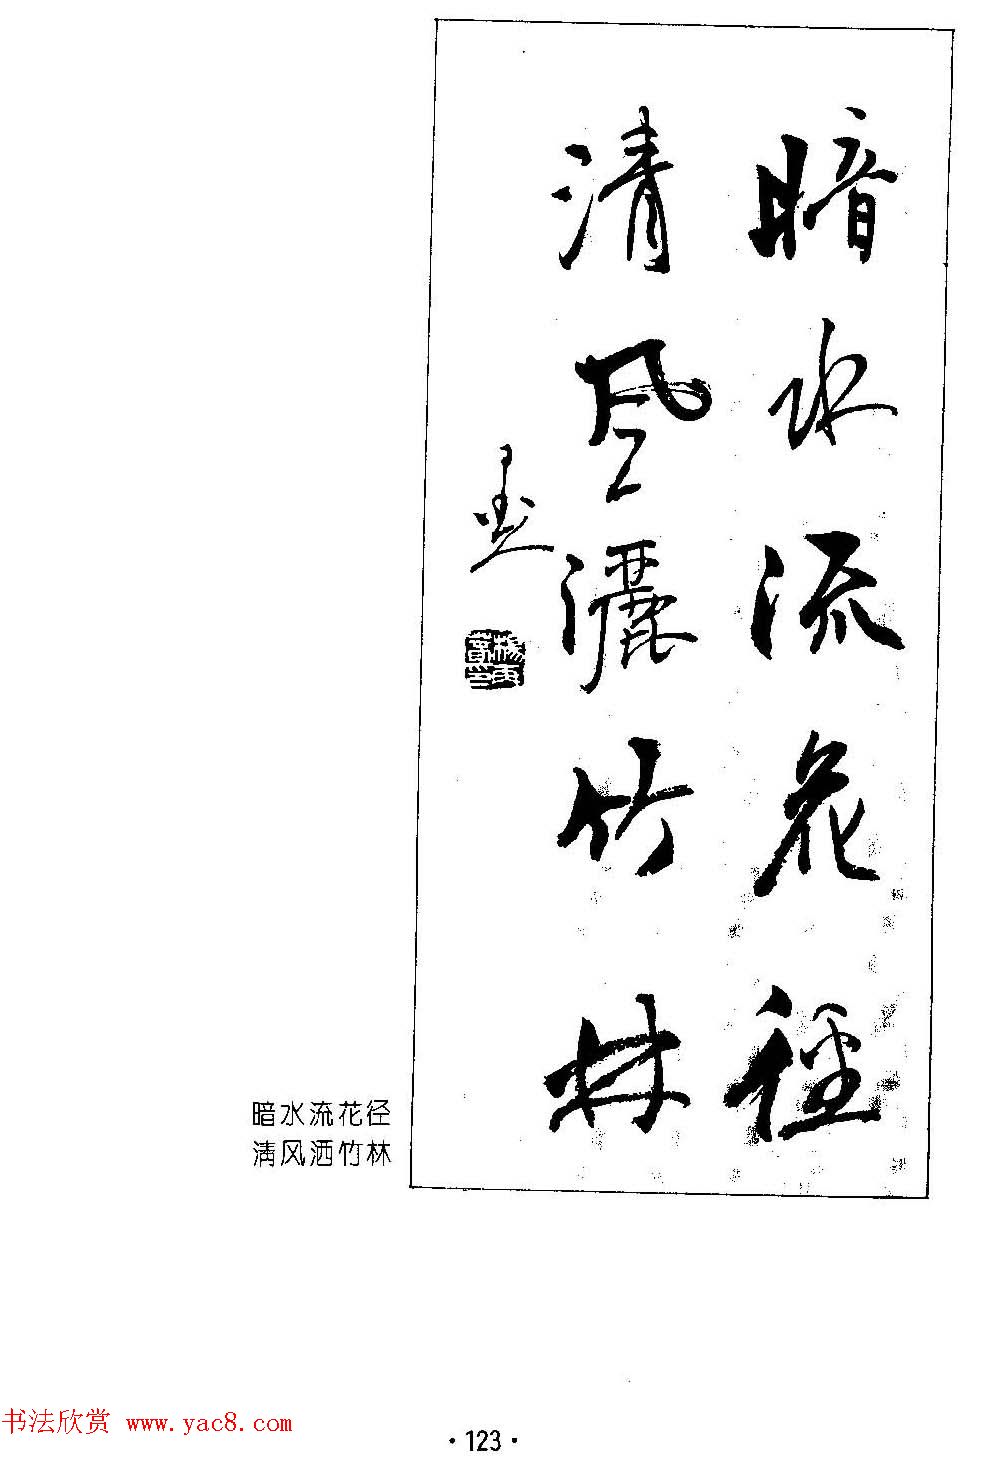 暗水流花徑
清风灑竹林
暗水流花径
清风洒竹林
书法欣赏 www.yac8.com
·123·